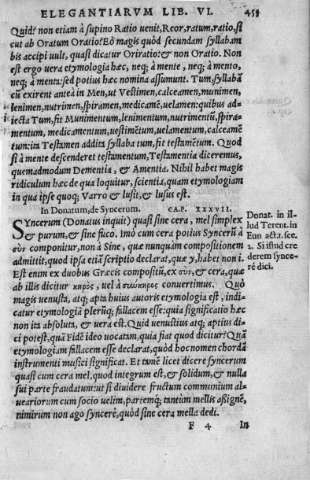 ELEGANTIARVM LIB. VI. 459
Quid? non etiam à supino Ratio uenit, Reor, ratum, ratio, si
cut ab Oratum Oratio? Eò magis quòd secundam syllabam
bis accipi uult, quasi dicatur Oriratio: & non Oratio. Non
est ergo uera etymologia hæc, neq; à mente, neq; à mento,
neq; à mentu: sed potius hæc nomina assumunt. Tum, syllabã
cũ exirent ante in Men, ut Vestimen, calceamen, munimen,
lenimen, nutrimen, spiramen, medicamē, uelamen: quibus ad=
iecta Tum, fit Munimentum, lenimentum, nutrimentũ, spira
mentum, medicamentum, uestimētum, uelamentum, calceamē
tum: ita Testamen addita syllaba tum, fit testamētum. Quod
si à mente descenderet testamentum, Testamentia diceremus,
quemadmodum Dementia, & Amentia. Nihil habet magis
ridiculum hæc de qua loquitur, scientia, quàm etymologiam
in qua ipse quoq; Varro & lusit, & lusus est.
In Donatum, de Syncerum. CAP. XXXVII.
SYncerum (Donatus inquit) quasi sine cera, mel simplex
& purum, & sine fuco. Imò cum cera potius Syncerũ à
σὺν componitur, non à Sine, quæ nunquàm compositionem
admittit, quod ipsa etiã scriptio declarat, quæ y, habet non i.
Est enim ex duobus Græcis compositũ, ex σὺν, & cera, quæ
ab illis dicitur κηρὸς, uel à συώκηρος conuertimus. Quò
magis uenusta, atq; apta huius autoris etymologia est, indi=
catur etymologiã plerũq; fallacem esse: quia significatio hæc
non ita absoluta, & uera est. Quid uenustius atq; aptius di=
ci potest, quàm Fidē ideo uocatam, quia fiat quod dicitur? Quàm
etymologiam fallacem esse declarat, quòd hoc nomen chordã
instrumenti musici significat. Et tamē licet dicere syncerum
quasi cum cera mel, quod integrum est, & solidum, & nulla
sui parte fraudatum: ut si diuidere fructum communium al=
ueariorum cum socio uelim, partemq; tantam mellis aßignē,
nimirum non ago syncerè, quòd sine cera mella dedi.
Donat. in il-
lud Terent. in
Eun acta. sce.
2. Si istud cre
derem synce-
rè dici.
F 4 In